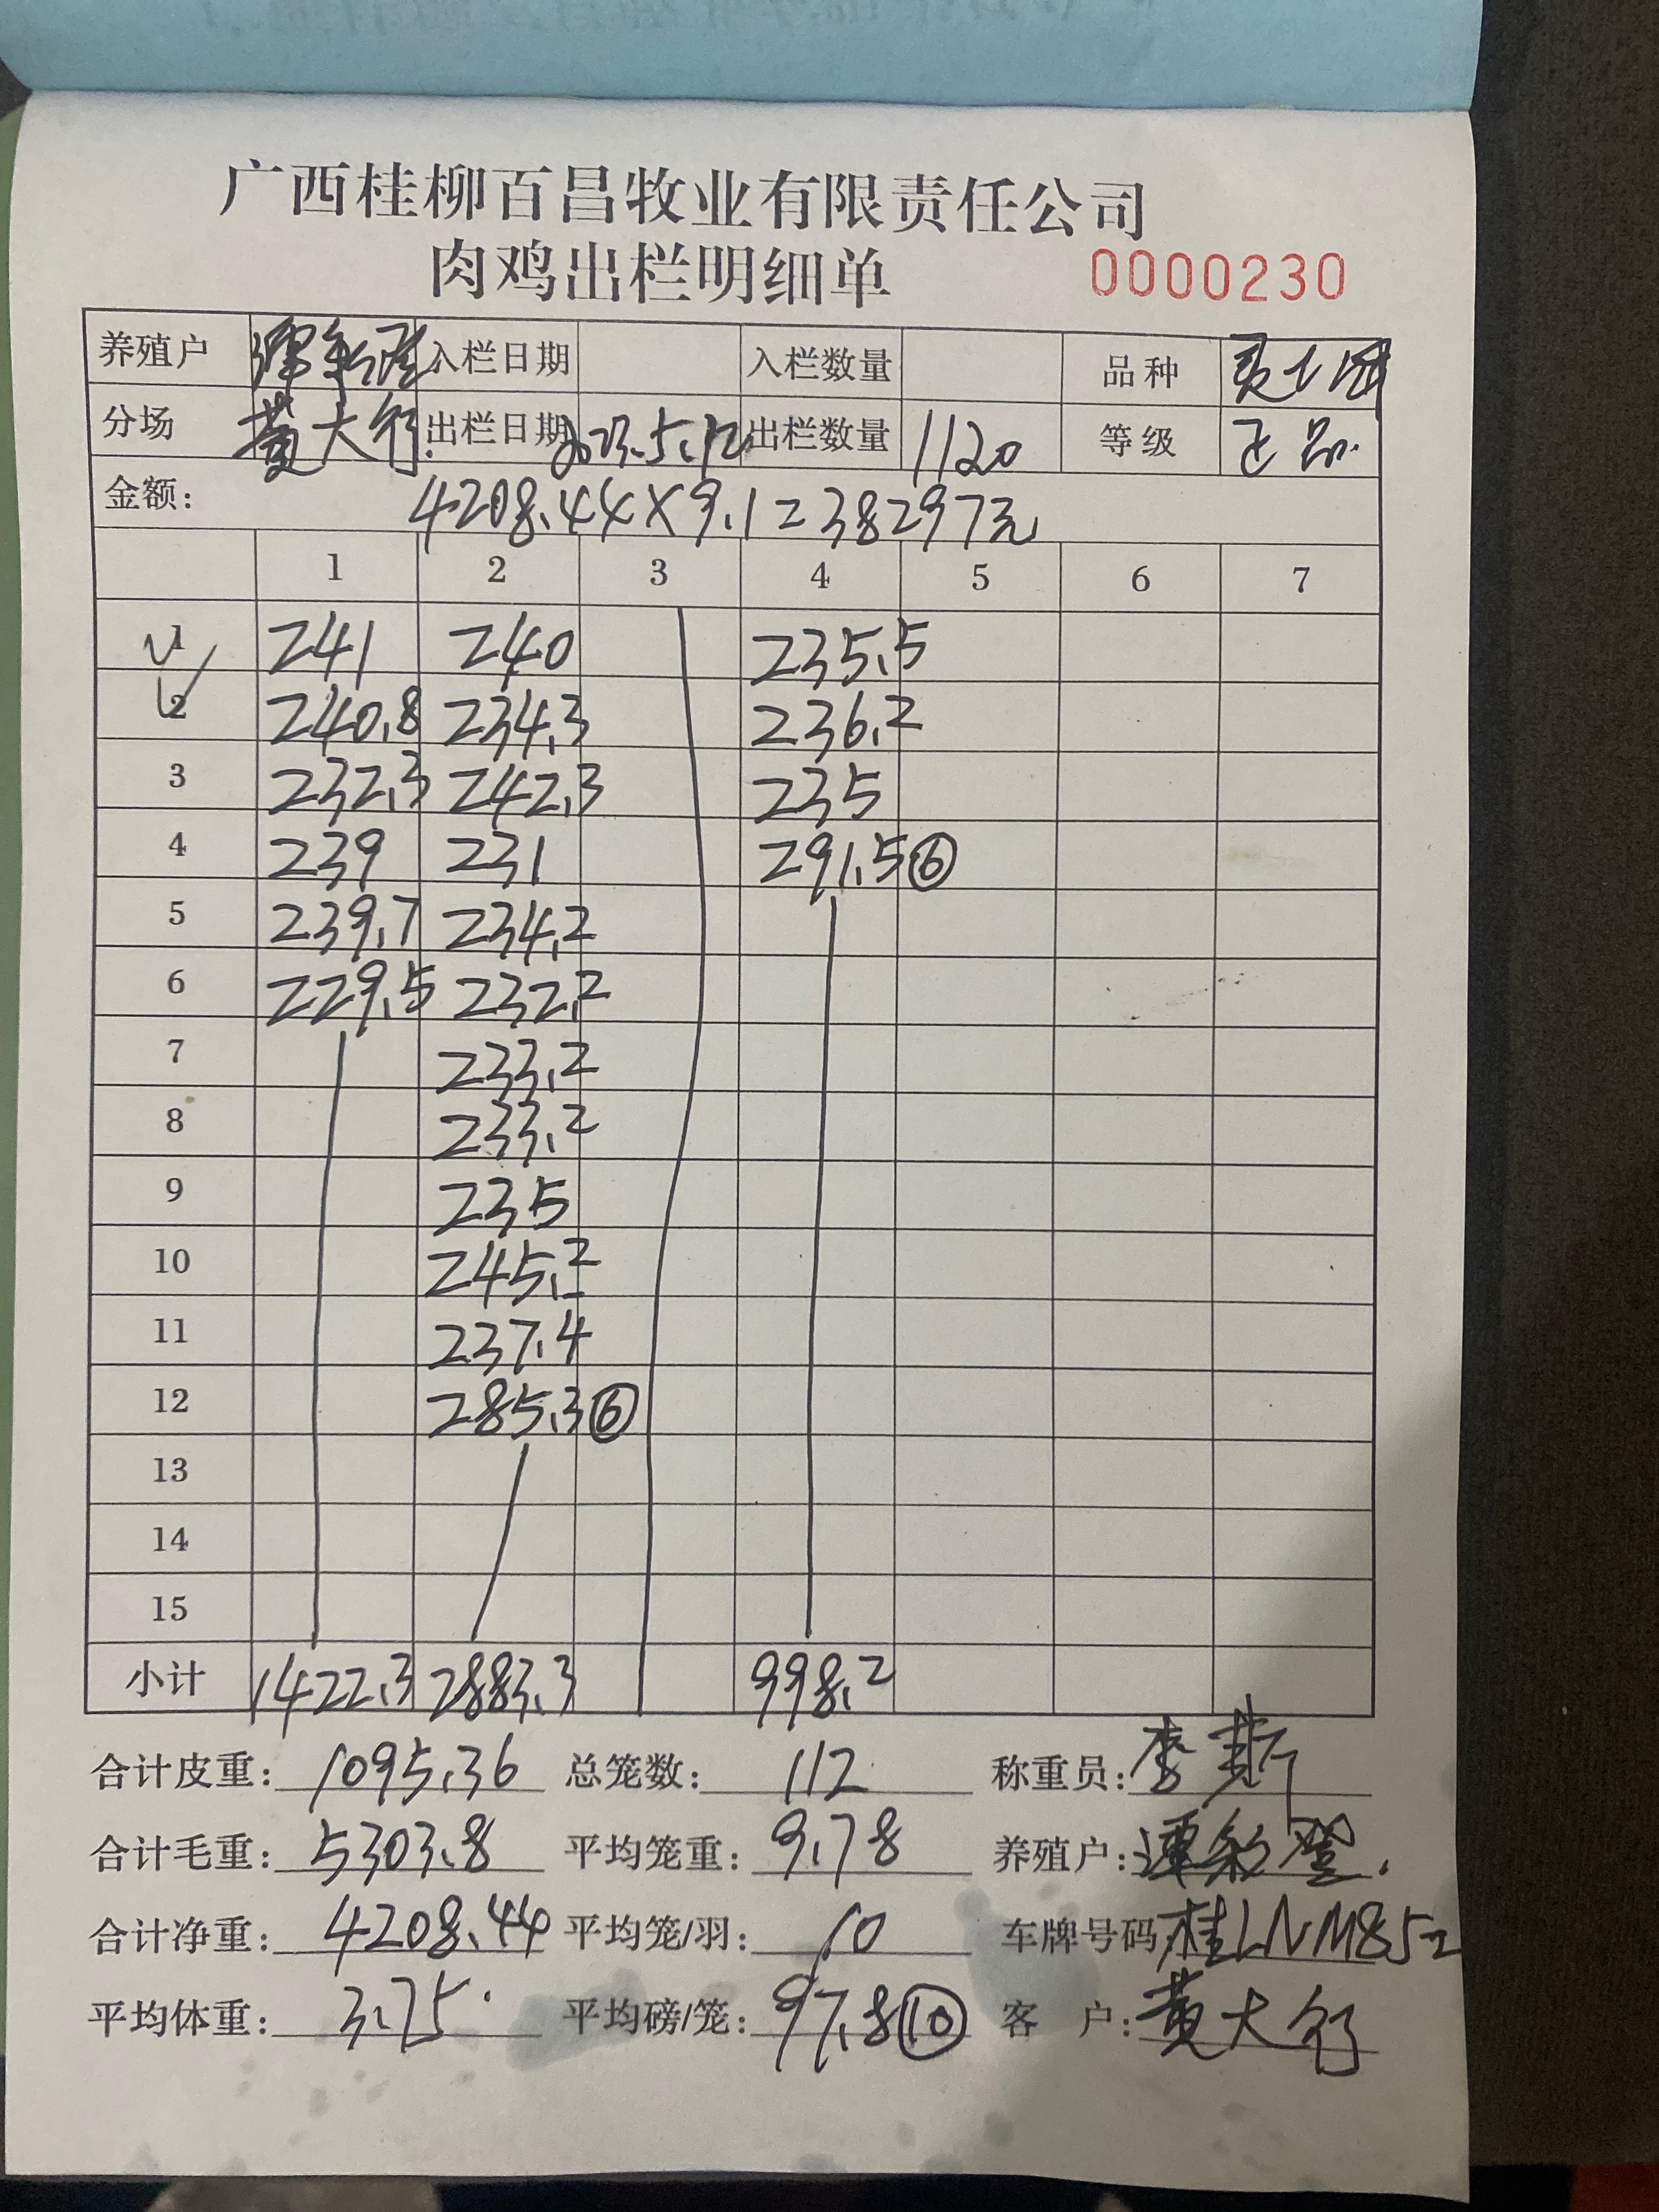 广西桂柳百昌牧业有限责任公司
肉鸡出栏明细单 0000230
养殖户 入栏日期 入栏数量 品种
分场 黄大 出栏日期 2023.5.12 出栏数量 1120 等级 正品
金额: 4208.44×9.1=38297元
1 2 3 4 5 6 7
1 241 240 235.5
2 240.8 234.3 236.2
3 232.3 242.3 235
4 239 231 291.5⑥
5 239.7 234.2
6 229.5 232.2
7 233.2
8 233.2
9 235
10 245.2
11 237.4
12 285.3⑥
13
14
15
小计 1422.3 2883.3 998.2
合计皮重: 1095.36 总笼数: 112 称重员: 李
合计毛重: 5303.8 平均笼重: 9.78 养殖户: 谭
合计净重: 4208.44 平均笼/羽: 10 车牌号码: 桂LNM852
平均体重: 3.75 平均磅/笼: 97.8⑩ 客户: 黄大